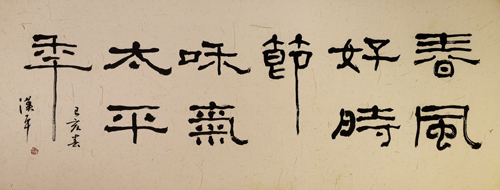 春風
好時
節
咊氣
太平
年
己亥春
漢平